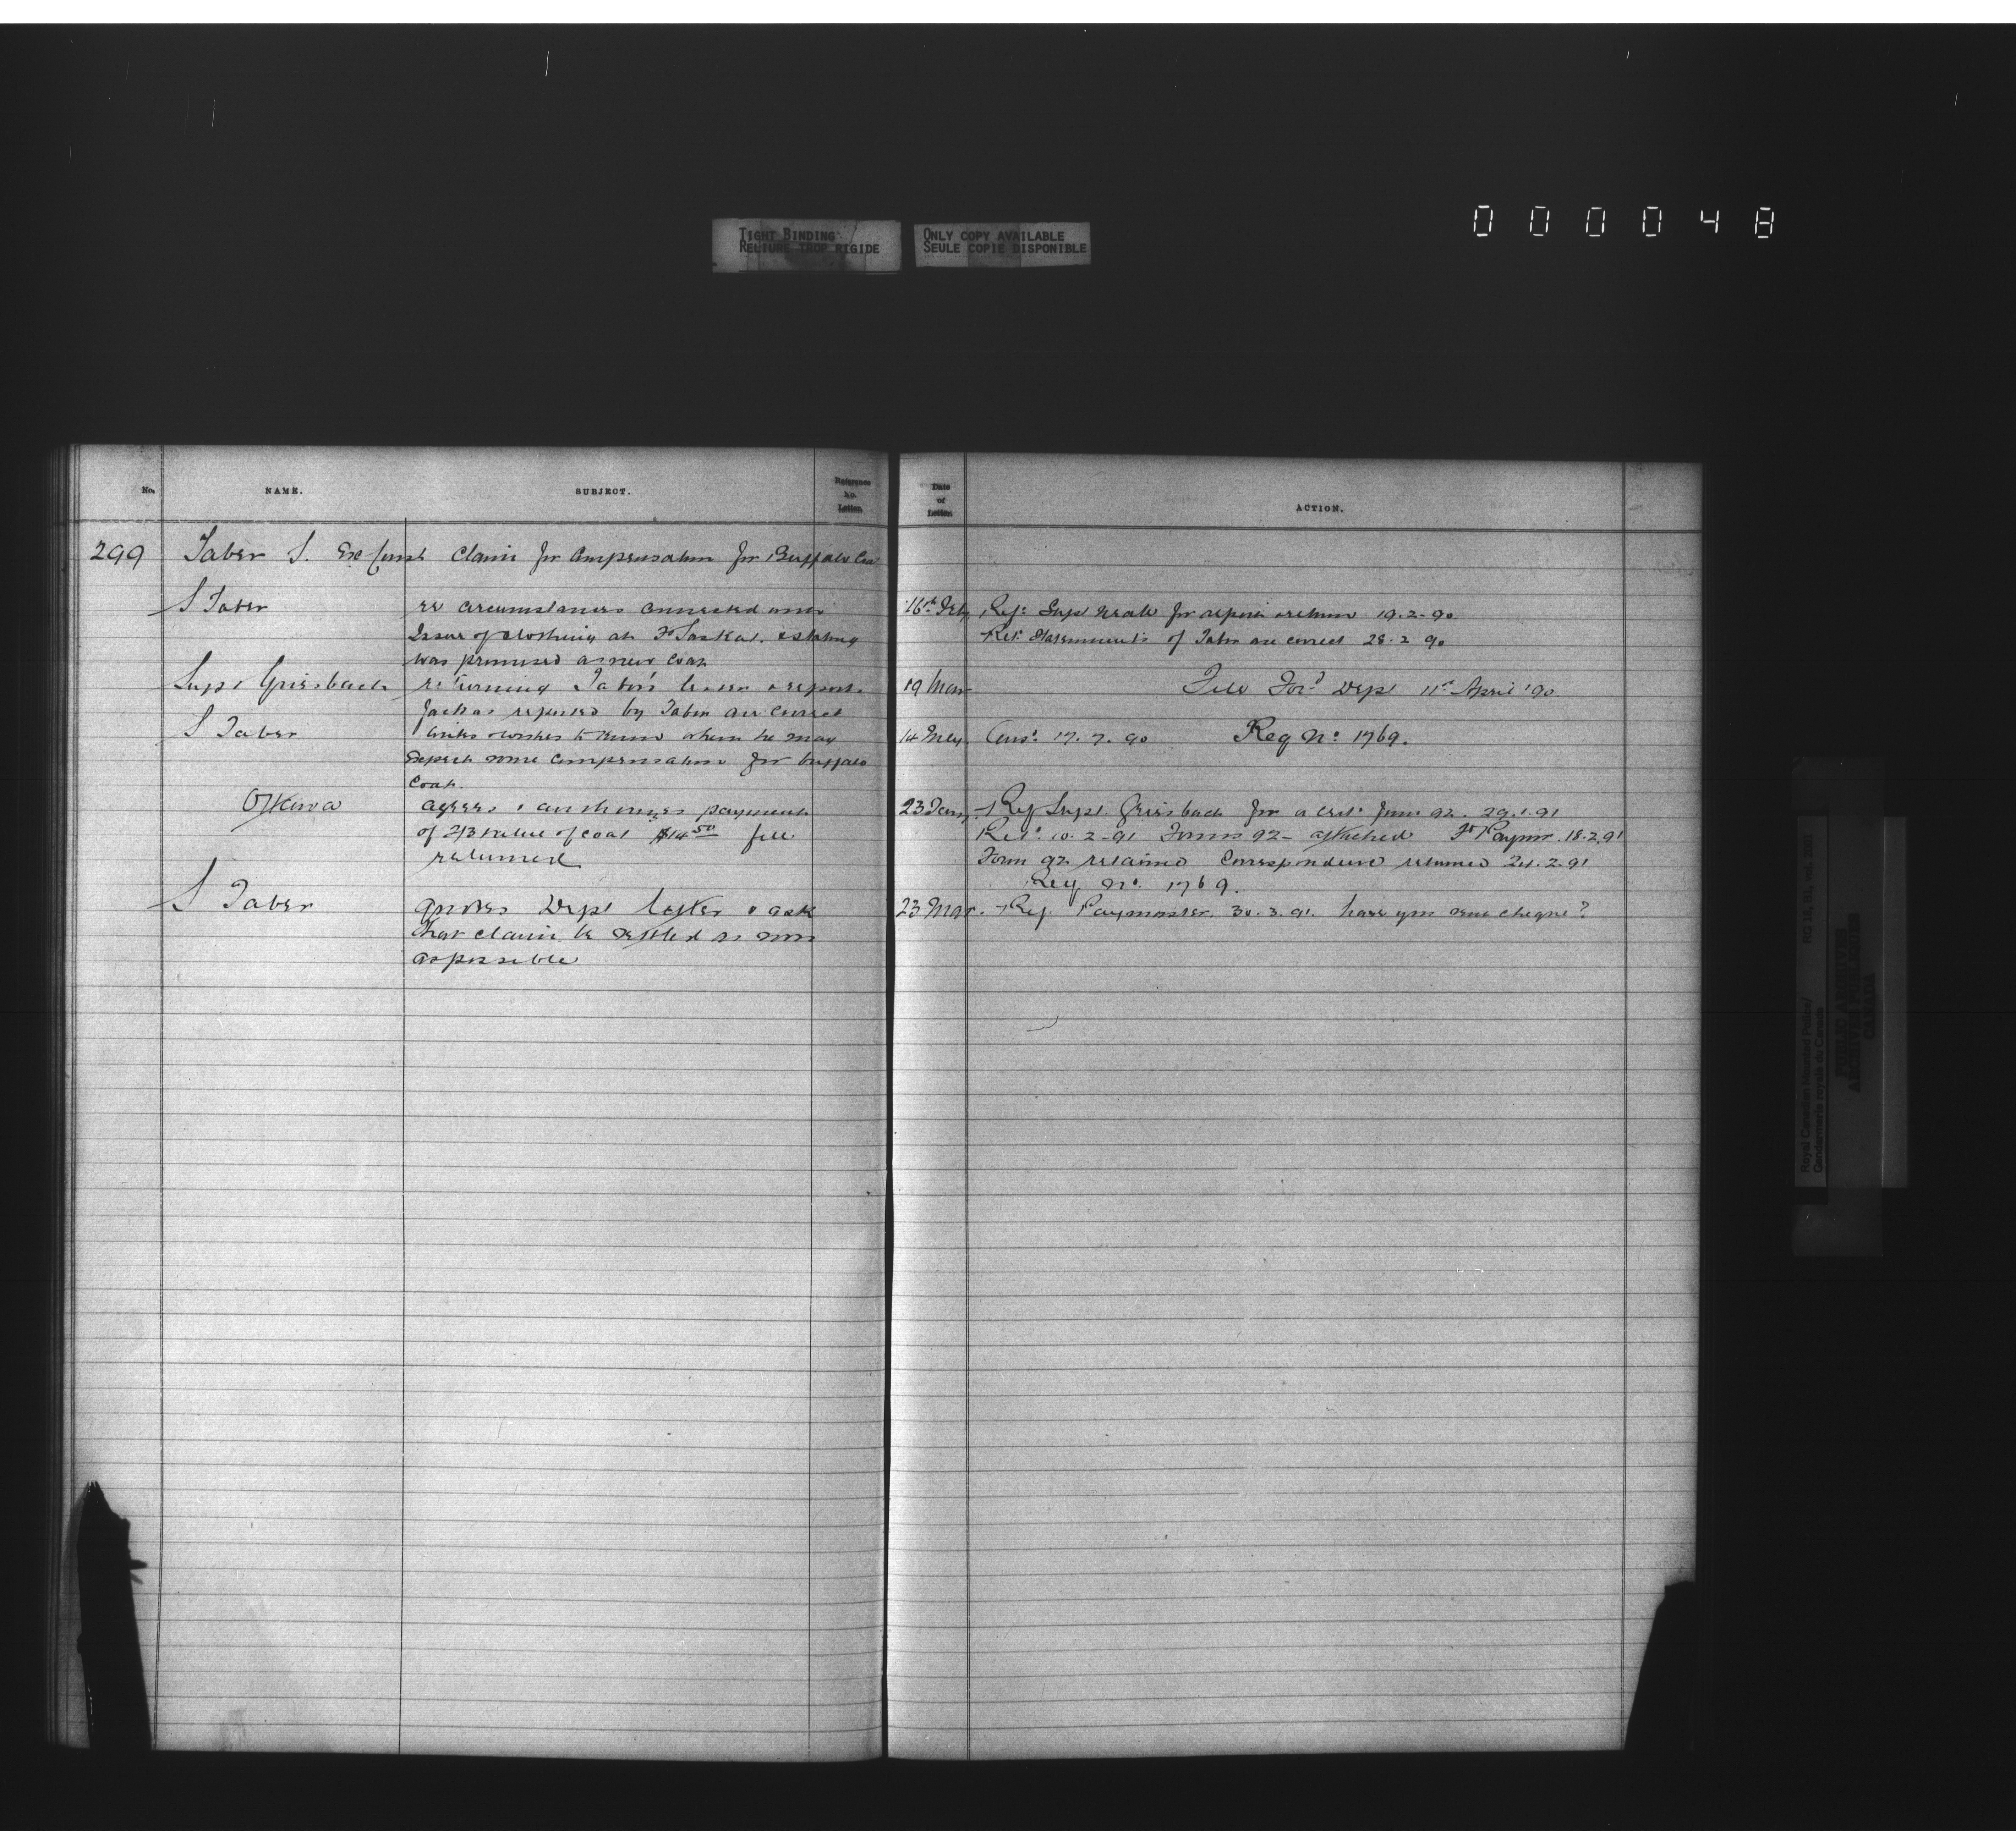 000048
TIGHT BINDING
RELIURE TROP RIGIDE
ONLY COPY AVAILABLE
SEULE COPIE DISPONIBLE
No. NAME. SUBJECT. Reference No. Letter. Date of Letter. ACTION.
299 Taber S. Ex Const Claim for Compensation for Buffalo Coat
S Taber re circumstances connected with 16th Feby Ref: Supt Neale for report & return 19.2-90
Issue of clothing at Ft Saskat. & stating Ret: Statements of Taber are correct 28.2 90
was promised a new coat
Supt Griesbach returning Taber's letter & report 19 Mar File Ford Dept 11th April '90
facts as reported by Taber are correct
S Taber writes & wishes to know when he may 14 May Ansd 17.7.90 Reg No: 1769.
expect some compensation for buffalo
coat.
Ottawa agrees & authorizes payment 23 Jany Ref Supt Griesbach for a cert: form 92. 29.1.91
of 2/3 value of coat $14 50 file Retd 10.2-91 Forms 92- attached Paymr. 18.2.91
returned Form 92 retained Correspondence returned 24.2.91
Reg No. 1769.
S Taber quotes Dept letter & ask 23 Mar. Ref. Paymaster. 30.3.91. have you sent cheque?
that claim be settled as soon
as possible
Royal Canadian Mounted Police/
Gendarmerie royale du Canada
RG 18,
PUBLIC ARCHIVES
ARCHIVES PUBLIQUES
CANADA